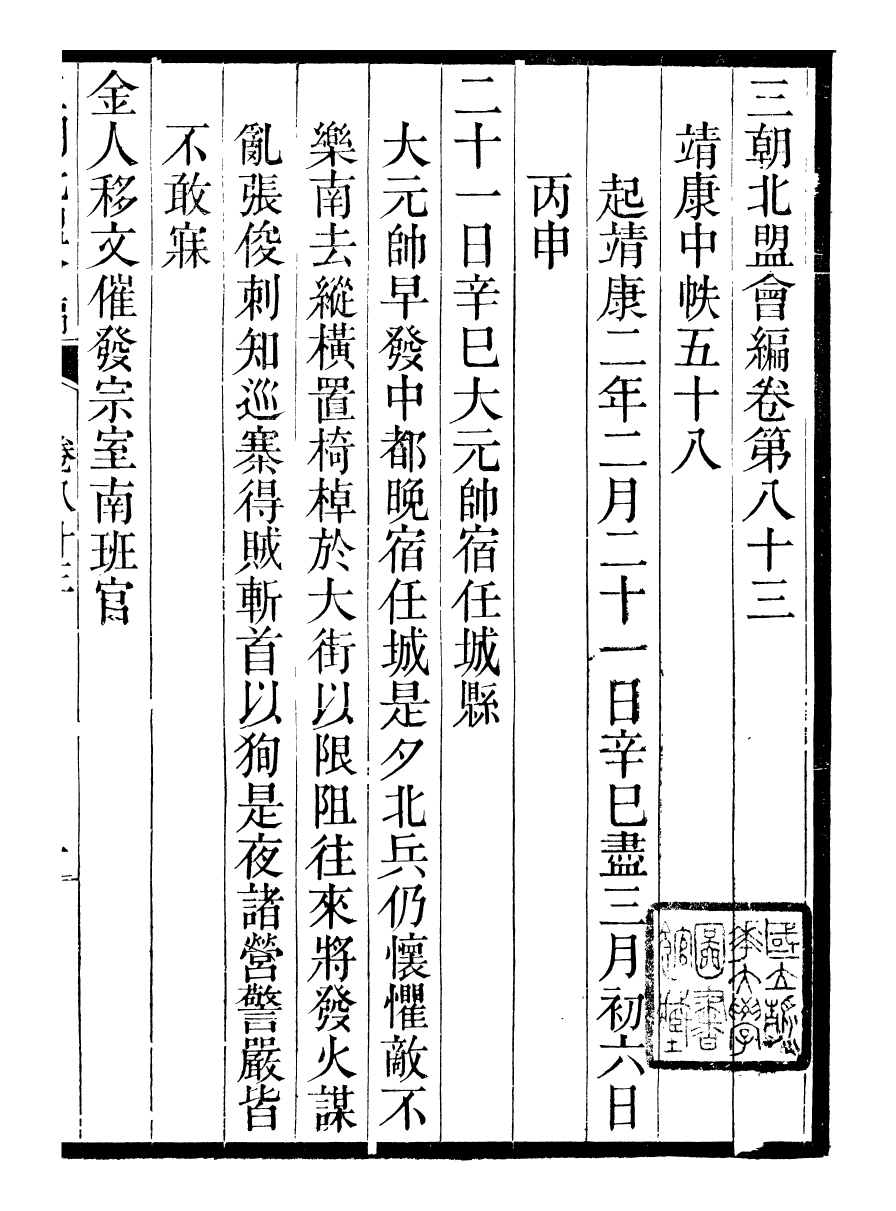 三朝北盟會編卷第八十三
靖康中帙五十八
起靖康二年二月二十一日辛巳盡三月初六日
丙申
二十一日辛巳大元帥宿任城縣
大元帥早發中都晚宿任城是夕北兵仍懷懼敵不
樂南去縱橫置椅棹於大街以限阻往來將發火謀
亂張俊刺知巡寨得賊斬首以狥是夜諸營警嚴皆
不敢寐
金人移文催發宗室南班官
卷八十三
國立
大學
圖書
館